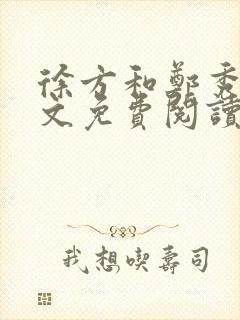 徐方和鄭秀
文免費閱讀
我想喫壽司